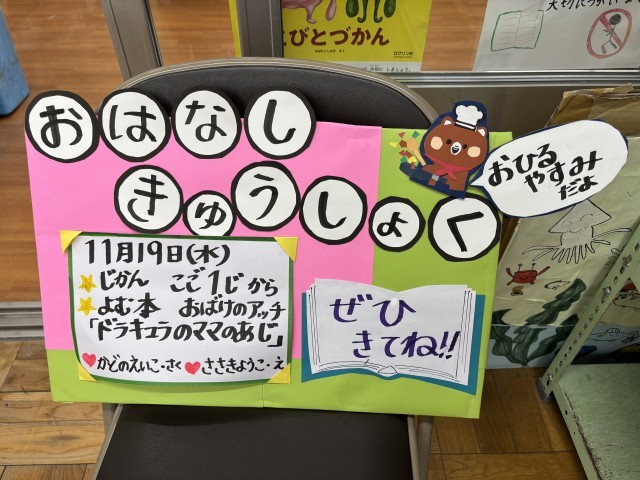 こびとづかん
ロクリン社
大切に
おはなし
きゅうしょく
おひる
やすみ
だよ
11月19日(水)
じかん ごご1じから
よむ本 おばけのアッチ
「ドラキュラのママのあじ」
かどのえいこ・さく ささきようこ・え
ぜひ
きてね!!